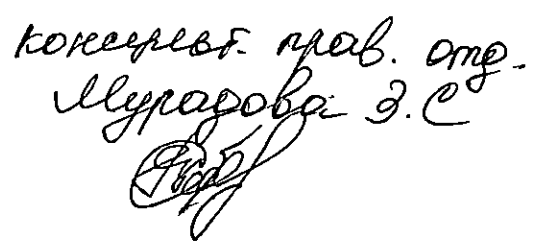 консульт. прав. отд.
Мурадова З.С